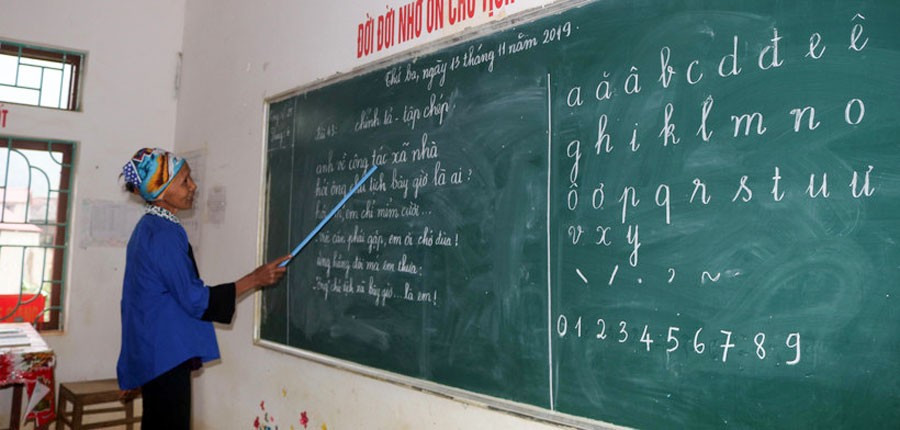 ĐỜI ĐỜI NHỚ ƠN CHỦ TỊCH
Thứ ba, ngày 13 tháng 11 năm 2019.
Bài 43: chính tả - tập chép.
anh về công tác xã nhà
hỏi ông chủ tịch bây giờ là ai?
em chỉ mỉm cười...
cần phải gặp, em ơi chớ đùa!
mà em thưa:
chủ tịch xã bây giờ... là em!
a ă â b c d đ e ê
g h i k l m n o
ô ơ p q r s t u ư
v x y
\ / . ? ~
0 1 2 3 4 5 6 7 8 9